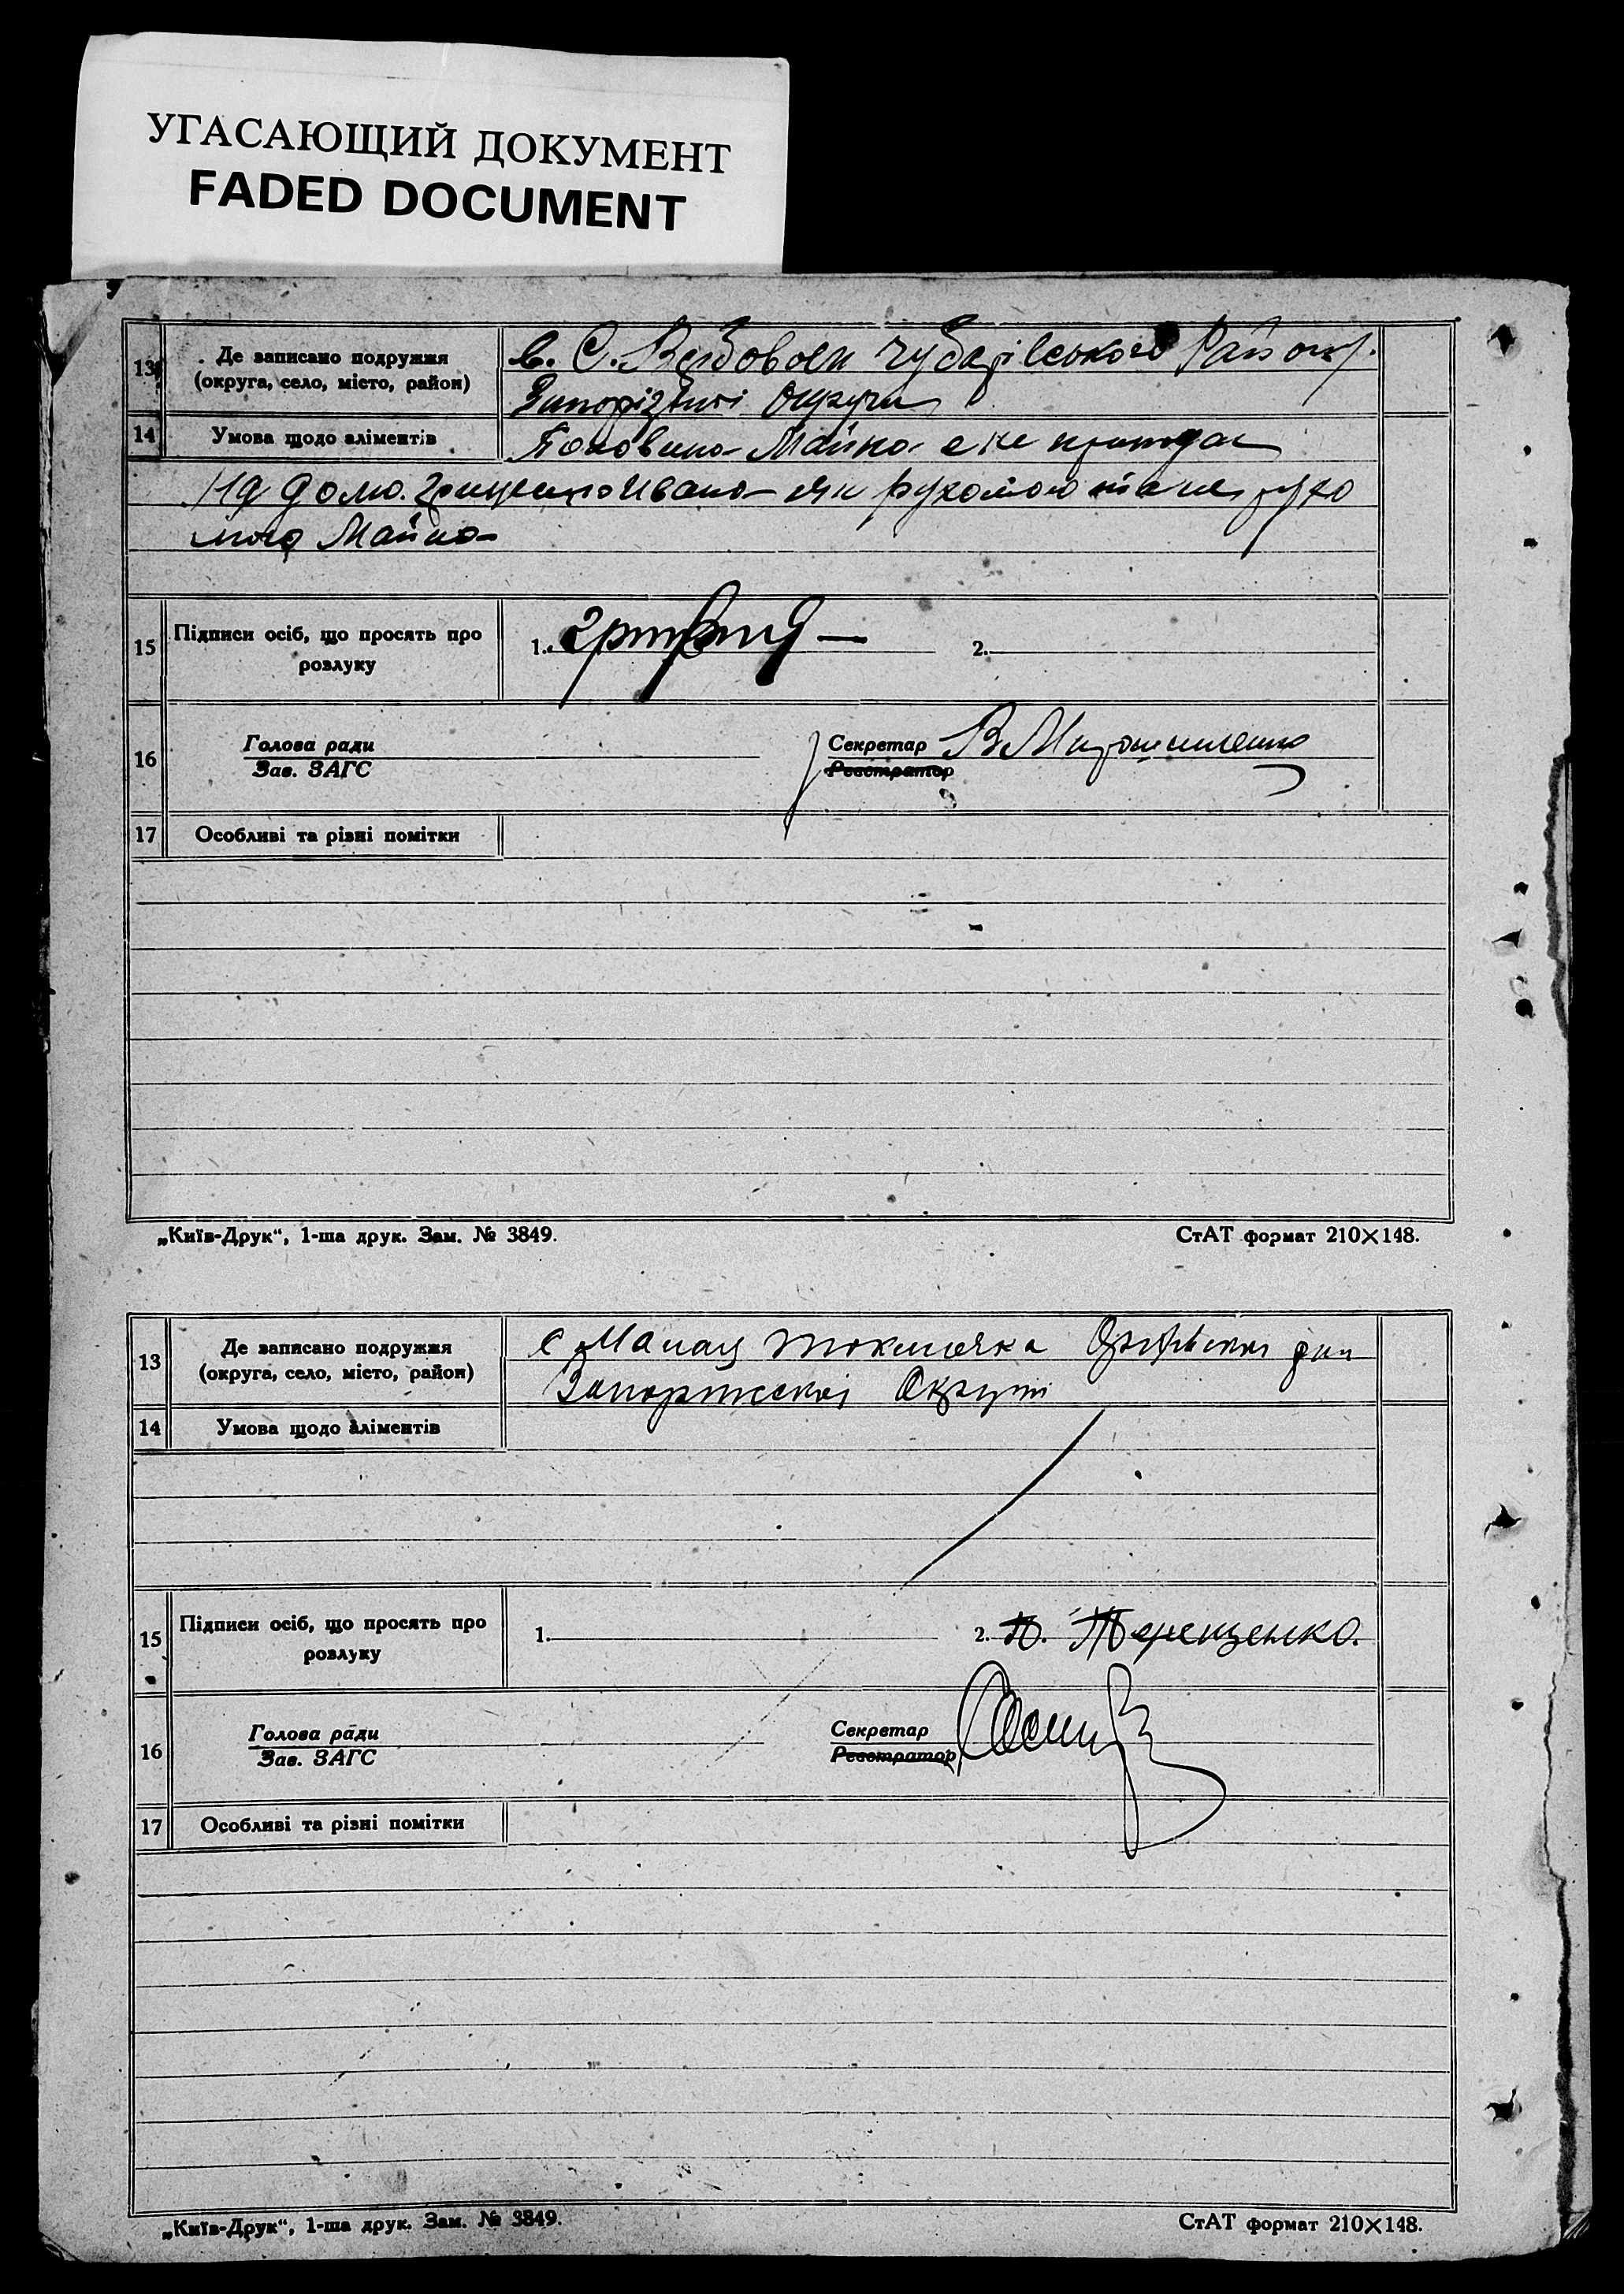 УГАСАЮЩИЙ ДОКУМЕНТ
FADED DOCUMENT
13 Де записано подружжя (округа, село, місто, район)
в. С. Вербовом Чубарівського Району
Запоріжжі Округи
14 Умова щодо аліментів
Половина Майна
На долю Грищенко Ивана рухомого та не рухо
мого Майна
15 Підписи осіб, що просять про розлуку 1. 2.
16 Голова ради Секретар В Мирошниченко
Зав. ЗАГС Реєстратор
17 Особливі та різні помітки
„Київ-Друк“, 1-ша друк. Зам. № 3849. СтАТ формат 210×148.
13 Де записано подружжя (округа, село, місто, район)
с Малая Токмачка Оріхівського рай
Запоріжської Округи
14 Умова щодо аліментів
15 Підписи осіб, що просять про розлуку 1. 2. П. Терещенко.
16 Голова ради Секретар
Зав. ЗАГС Реєстратор
17 Особливі та різні помітки
„Київ-Друк“, 1-ша друк. Зам. № 3849. СтАТ формат 210×148.